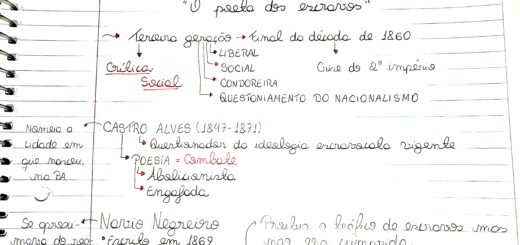 "O poeta dos escravos"
Terceira geração → Final da década de 1860
LIBERAL
Crítica Social
SOCIAL
Crise do 2º império
CONDOREIRA
QUESTIONAMENTO DO NACIONALISMO
Nomeia a cidade em que nasceu, na BA
CASTRO ALVES (1847-1871)
Questionador da ideologia escravocata vigente
POESIA = Combate
Abolicionista
Engajada
Navio Negreiro
Proibiu o tráfico de escravos mas
Escrito em 1869
não era cumprida